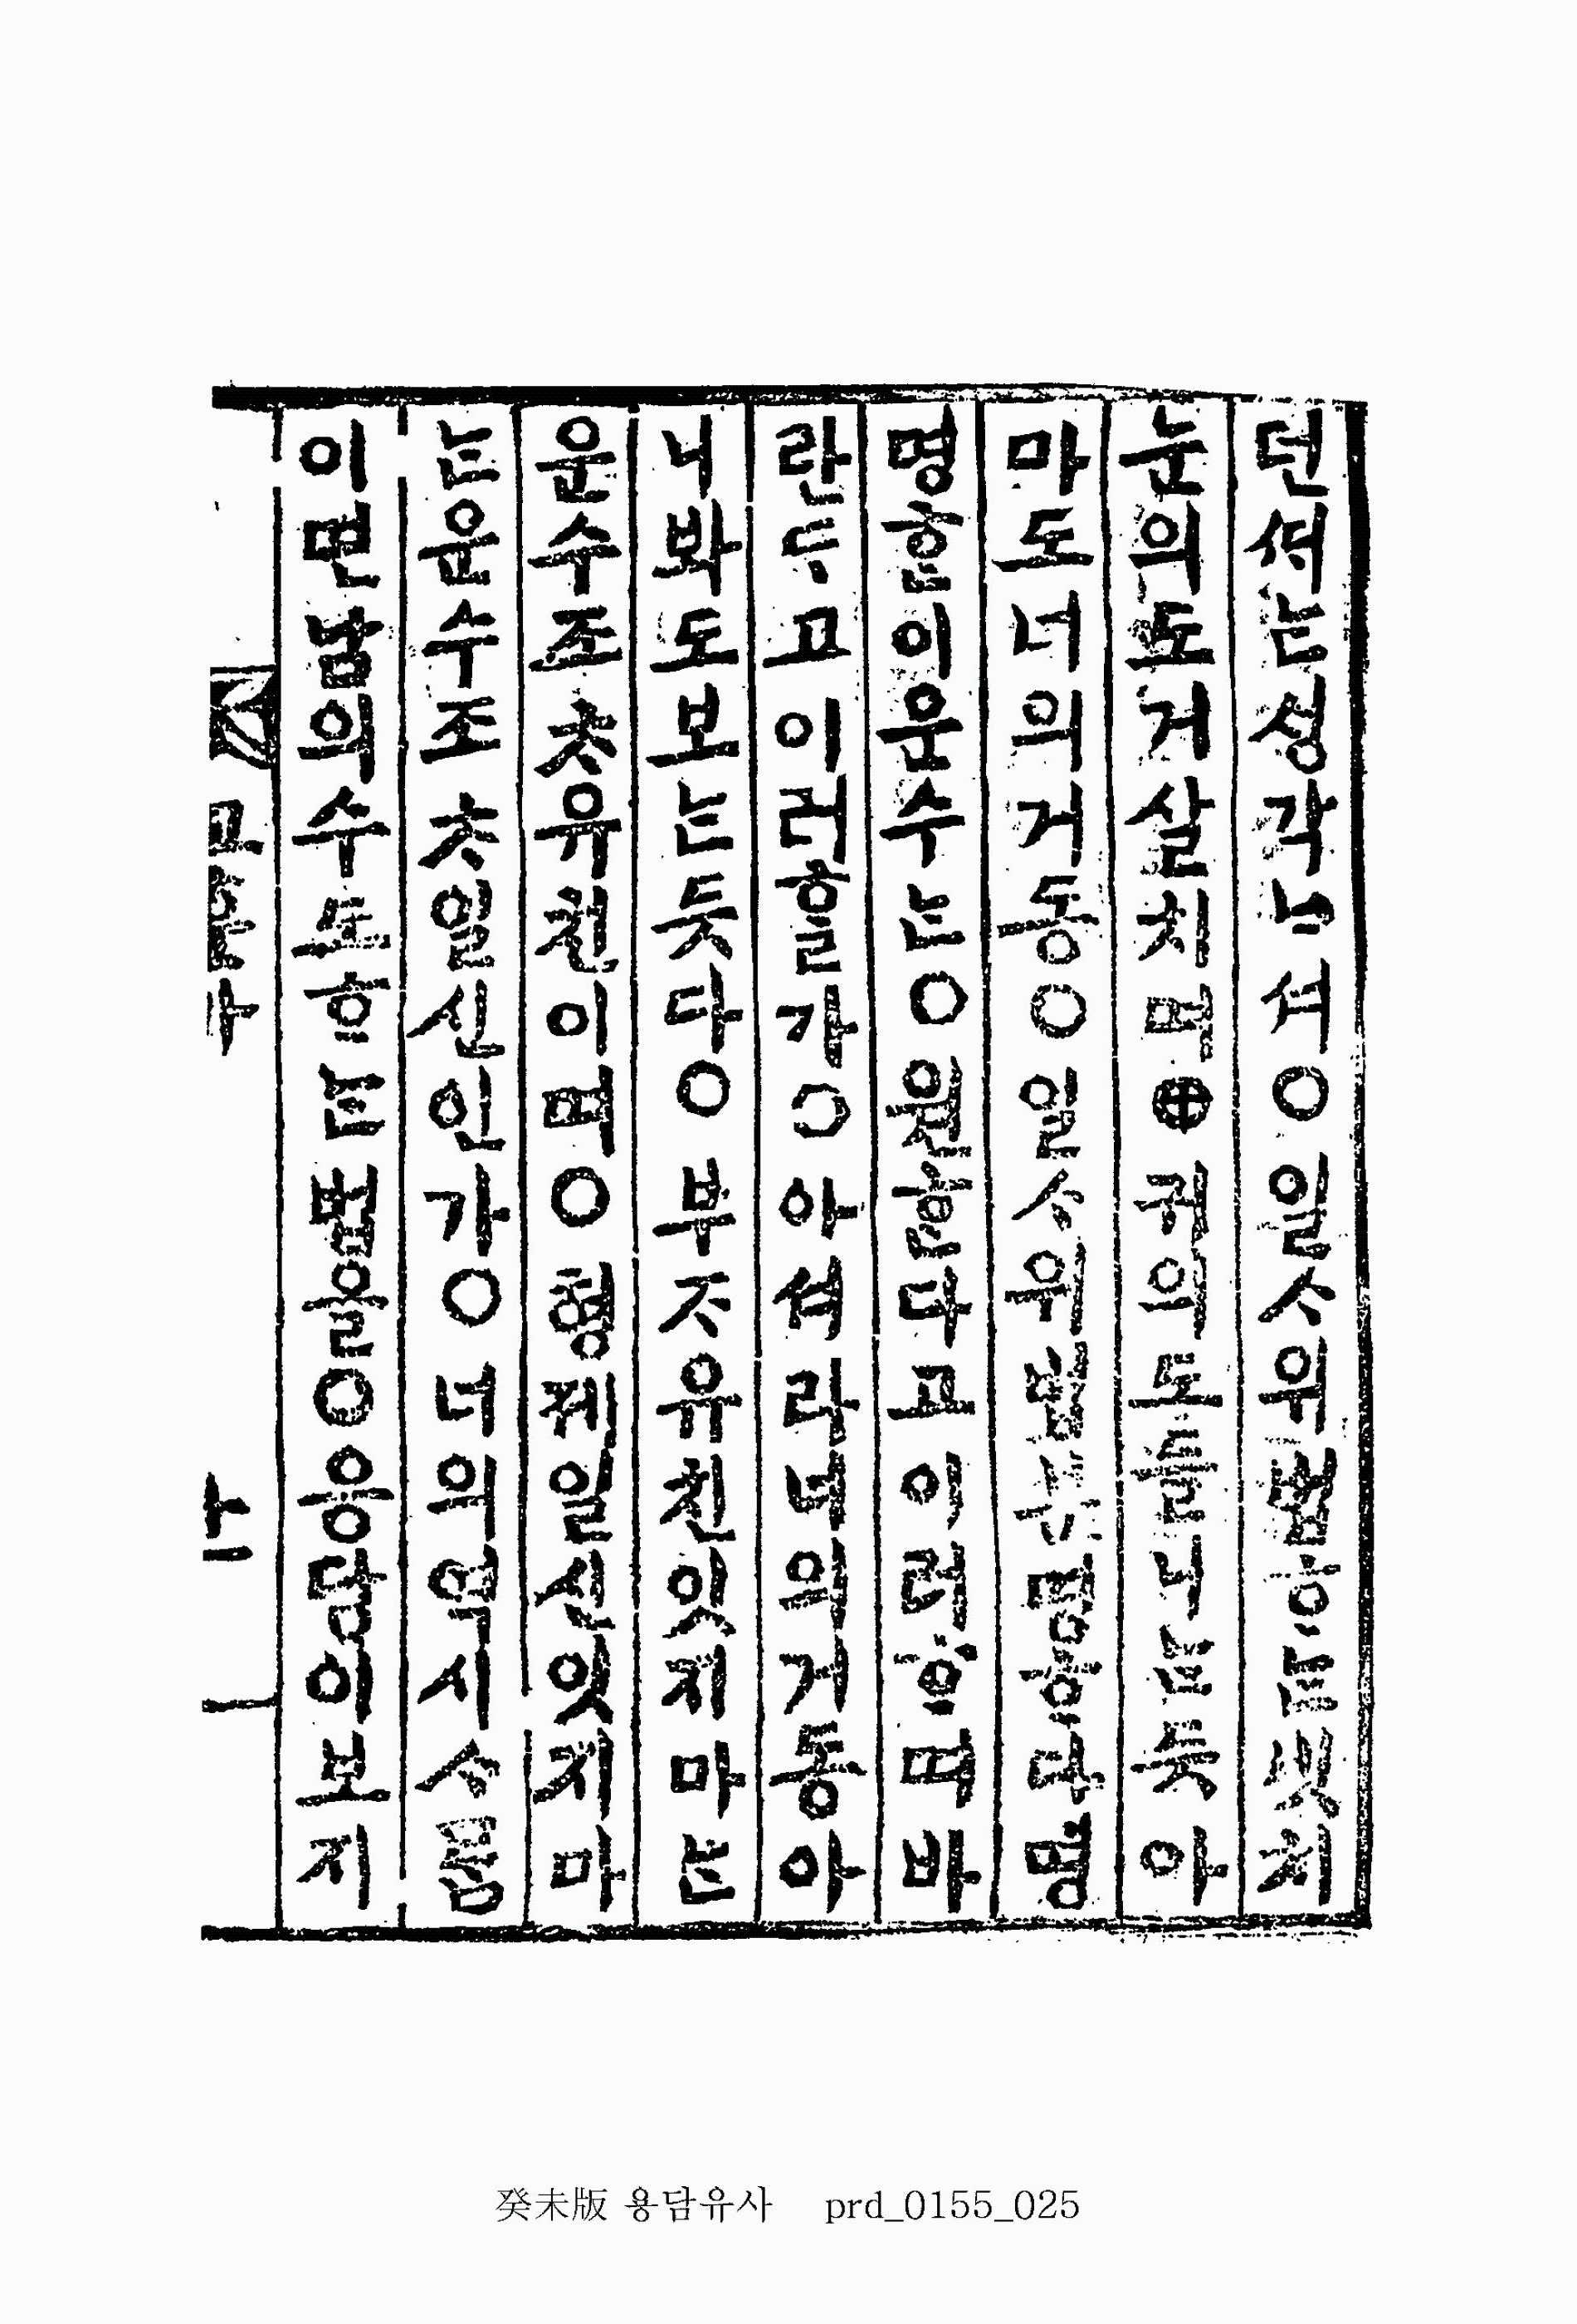 던셔는셩각ᄂᆞ셔○일ᄉᆞ위법ᄒᆞ는빗치
눈의도거살치며⊕귀의도들니는듯아
마도너의거동○일ᄉᆞ위법분명ᄒᆞ다명
명ᄒᆞᆫ이운수는○원ᄒᆞᆫ다고이러ᄒᆞ며바
란ᄃᆞ고이러ᄒᆞᆯ가○아셔라너의거동아
니봐도보는듯다○부ᄌᆞ유친잇지마는
운수조ᄎᆞ유친이며○형졔일신잇지마
는운수조ᄎᆞ일신인가○너의역시ᄉᆞ람
이면남의수도ᄒᆞ는법을○응당이보지
교훈가
癸未版 용담유사 prd_0155_025